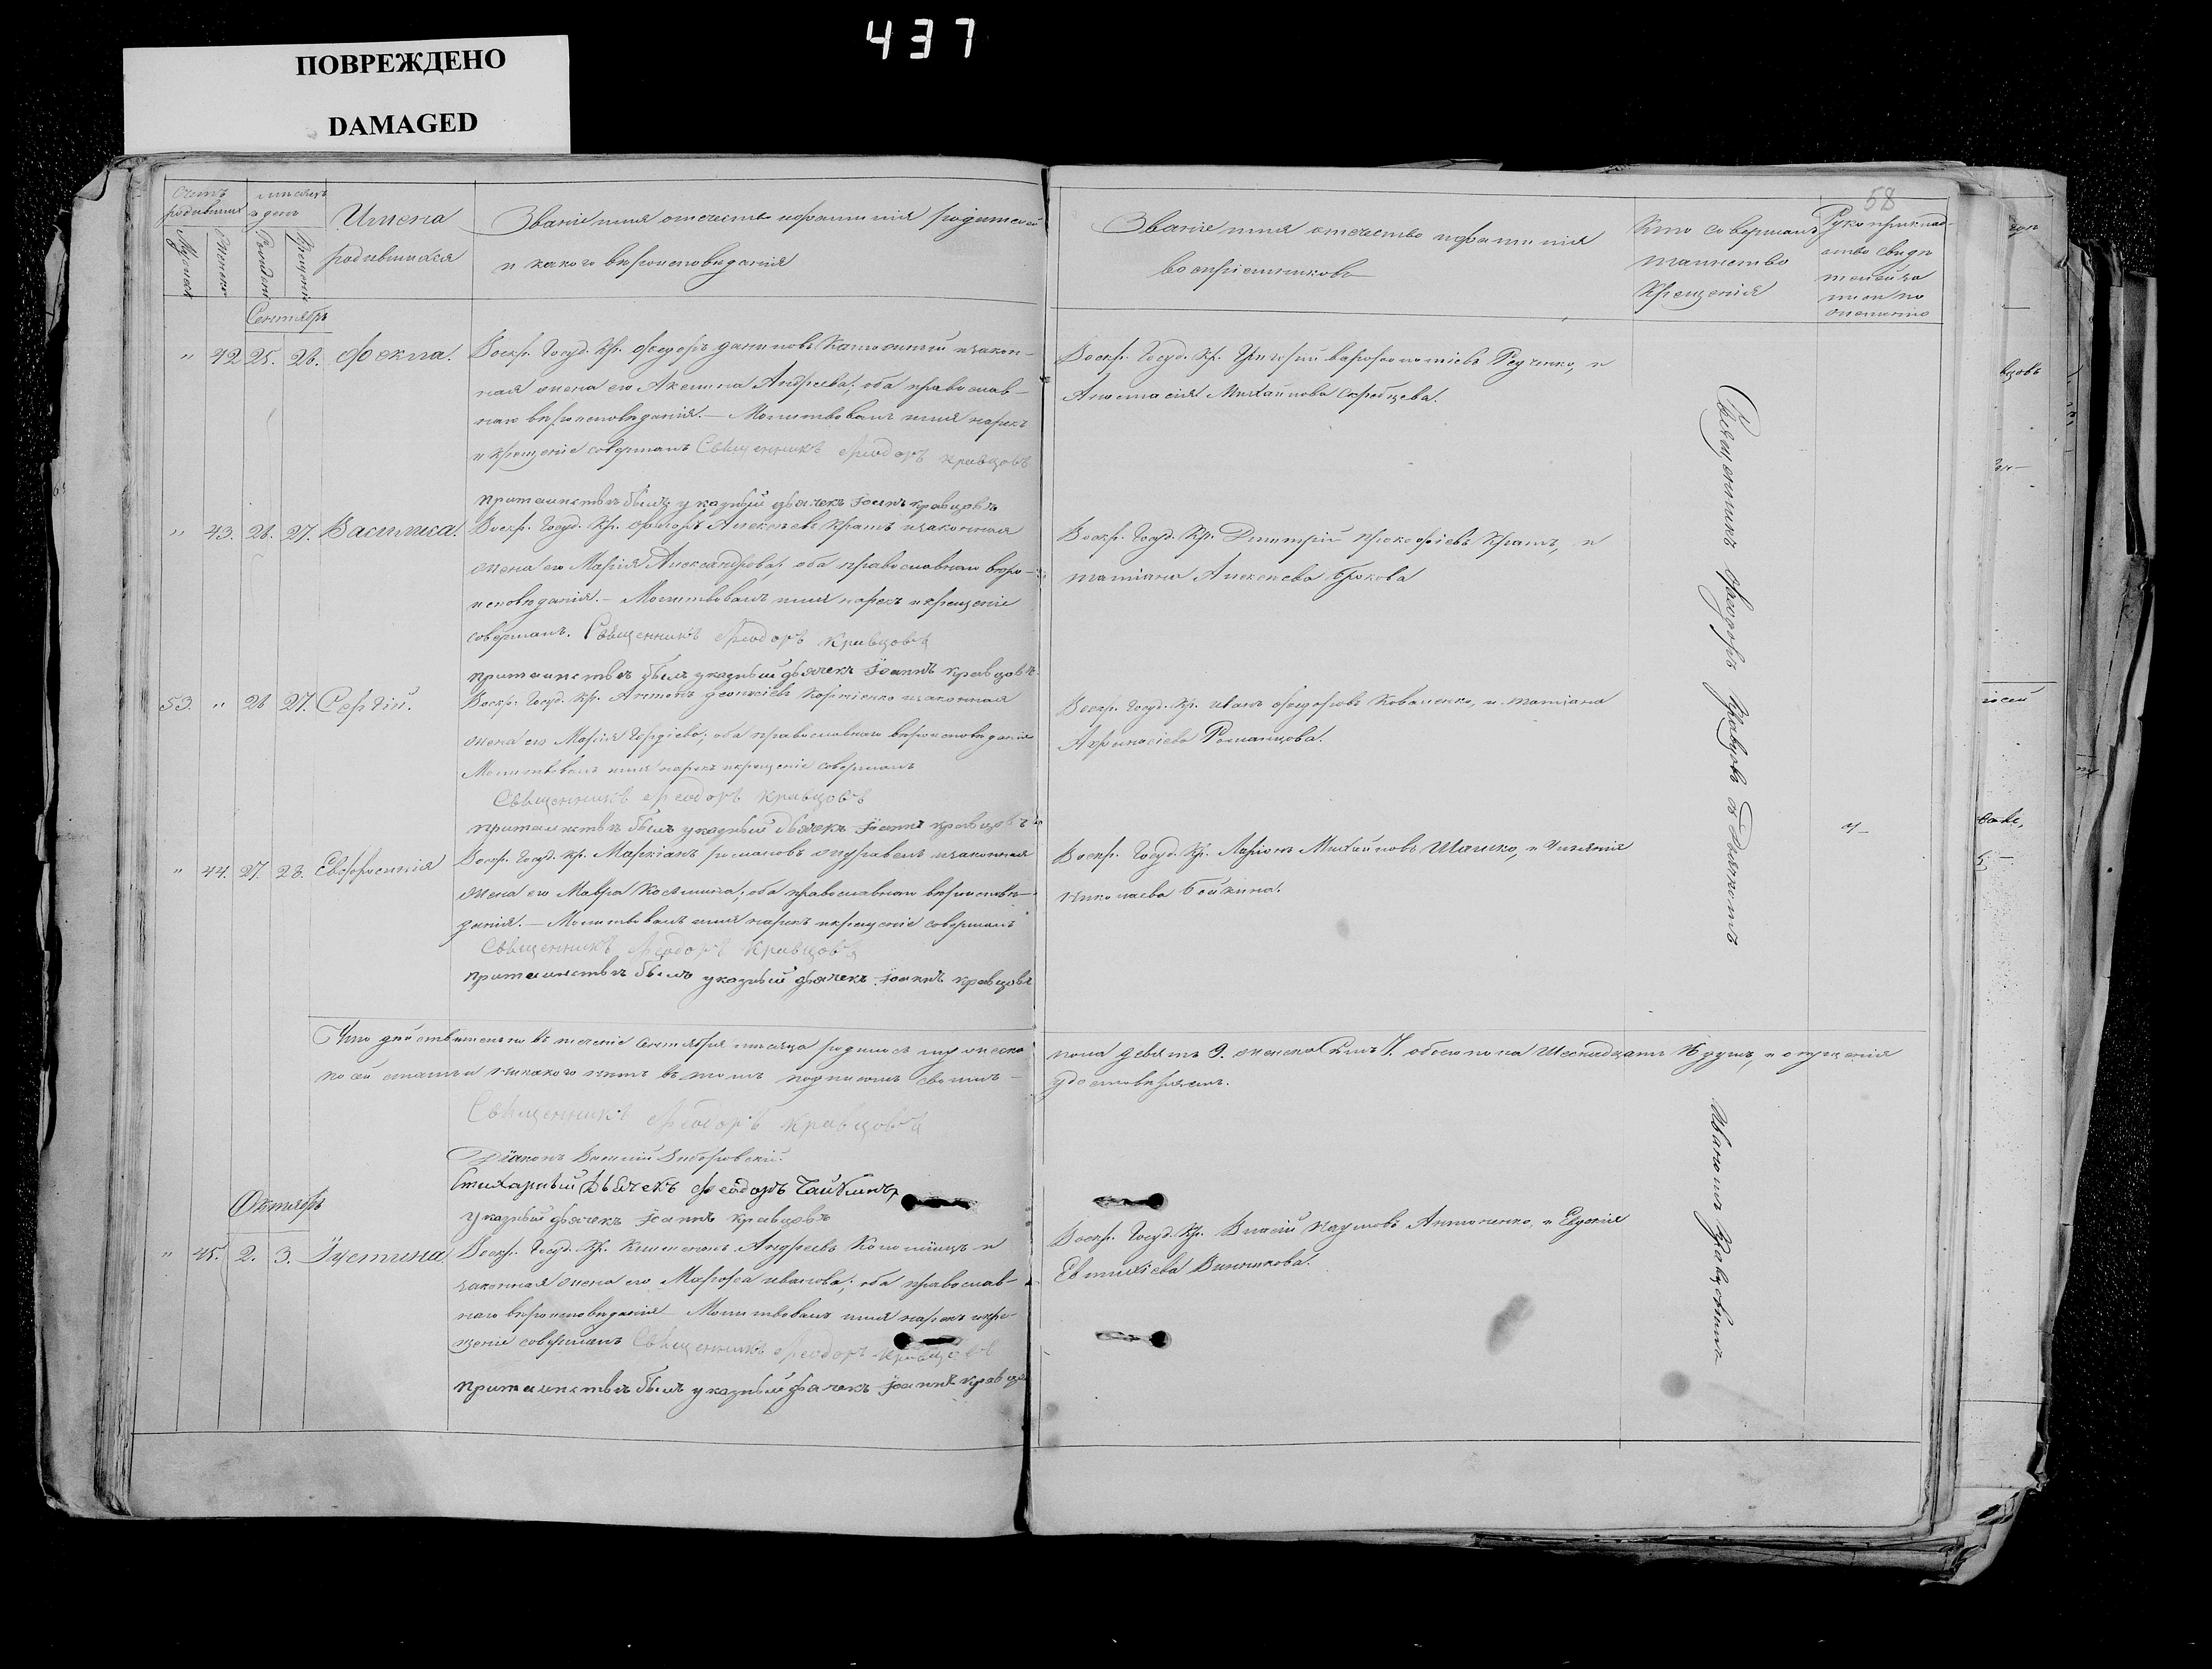 437
ПОВРЕЖДЕНО
DAMAGED
58
Счетъ родившихся
Мужеска
Женска
мѣсяцъ и день
Рожденія
Крещенія
Имена
родившихся
Званіе имя отечество и фамилія родителей
и какого вѣроисповѣданія
Званіе имя отечество и фамилія
воспріемниковъ
Кто совершалъ
таинство
Крещенія
Рукоприклад
ство свидѣ
телей за
писи по
желанію
Сентябрь
" 42. 25. 26. Фекла.
Воскр. Госуд. Кр. Федоръ Даниловъ изакон-
ная жена его Акелина Андреева; оба православ-
наго вѣроисповѣданія. — Молитвовалъ имя нарекъ
и крещеніе совершалъ Священникъ Феодоръ Кравцовъ
При таинствѣ былъ указный дьячекъ Іоаннъ Кравцовъ
Воскр. Госуд. Кр. Григорій Варфоломіевъ Редченко, и
Анастасія Михайлова
" 43. 26. 27. Василиса.
Воскр. Госуд. Кр. Алексѣевъ Крамъ изаконная
жена его Марія Александрова; оба православнаго вѣро-
исповѣданія. — Молитвовалъ имя нарекъ и крещеніе
совершалъ. Священникъ Феодоръ Кравцовъ
При таинствѣ былъ указный дьячекъ Іоаннъ Кравцовъ
Воскр. Госуд. Кр. Димитрій Прокофіевъ Крамъ, и
Татіана Алексѣева
53. " 26 27. Сергій.
Воскр. Госуд. Кр. Антонъ Корніенко изаконная
жена его Марія Гордіева; оба православнаго вѣроисповѣданія
Молитвовалъ имя нарекъ и крещеніе совершалъ
Священникъ Феодоръ Кравцовъ
При таинствѣ былъ указный дьячекъ Іоаннъ Кравцовъ
Воскр. Госуд. Кр. Иванъ Федоровъ Коваленко, и Татіана
Афанасіева Романцова.
" 44. 27. 28. Евфросинія
Воскр. Госуд. Кр. Маркіанъ Романовъ Журавель изаконная
жена его Мавра Косьмина; оба православнаго вѣроисповѣ-
данія. — Молитвовалъ имя нарекъ и крещеніе совершалъ
Священникъ Феодоръ Кравцовъ
При таинствѣ былъ указный дьячекъ Іоаннъ Кравцовъ
Воскр. Госуд. Кр. Ларіонъ Михайловъ Шашко, и
Николаева Бойкина.
Священникъ Феодоръ Кравцовъ съ Дьячкомъ
Иваномъ Кравцовымъ
Что дѣйствительно въ теченіе сентября мѣсяца родилось мужеска
пола девять 9. женска семь 7. обоего пола шеснадцать 16 душъ, и опущенія
по сей статьи никакого нѣтъ въ томъ подписомъ своимъ
удостовѣряемъ.
Священникъ Феодоръ Кравцовъ
Діаконъ Василій
Стихарный Дьячекъ Феодоръ Чайкинъ
Указный дьячекъ Іоаннъ Кравцовъ
Октябрь
" 45. 2. 3. Іустина.
Воскр. Госуд. Кр. Климентъ Андреевъ Коломіецъ и
законная жена его Марфа Иванова; оба православ-
наго вѣроисповѣданія Молитвовалъ имя нарекъ и кре-
щеніе совершалъ Священникъ Феодоръ Кравцовъ
При таинствѣ былъ указный дьячекъ Іоаннъ Кравцовъ
Воскр. Госуд. Кр. Власій Наумовъ Антоненко, и Евдокія
Евтихіева Винникова.